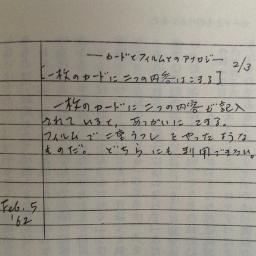 カードとフィルムとのアナロジー 2/3
[一枚のカードに二つの内容はこまる]
一枚のカードに二つの内容が記入
されていると、あつかいにこまる。
フィルムで二重うつしをやったような
ものだ。どちらにも利用できない。
Feb. 5
'62